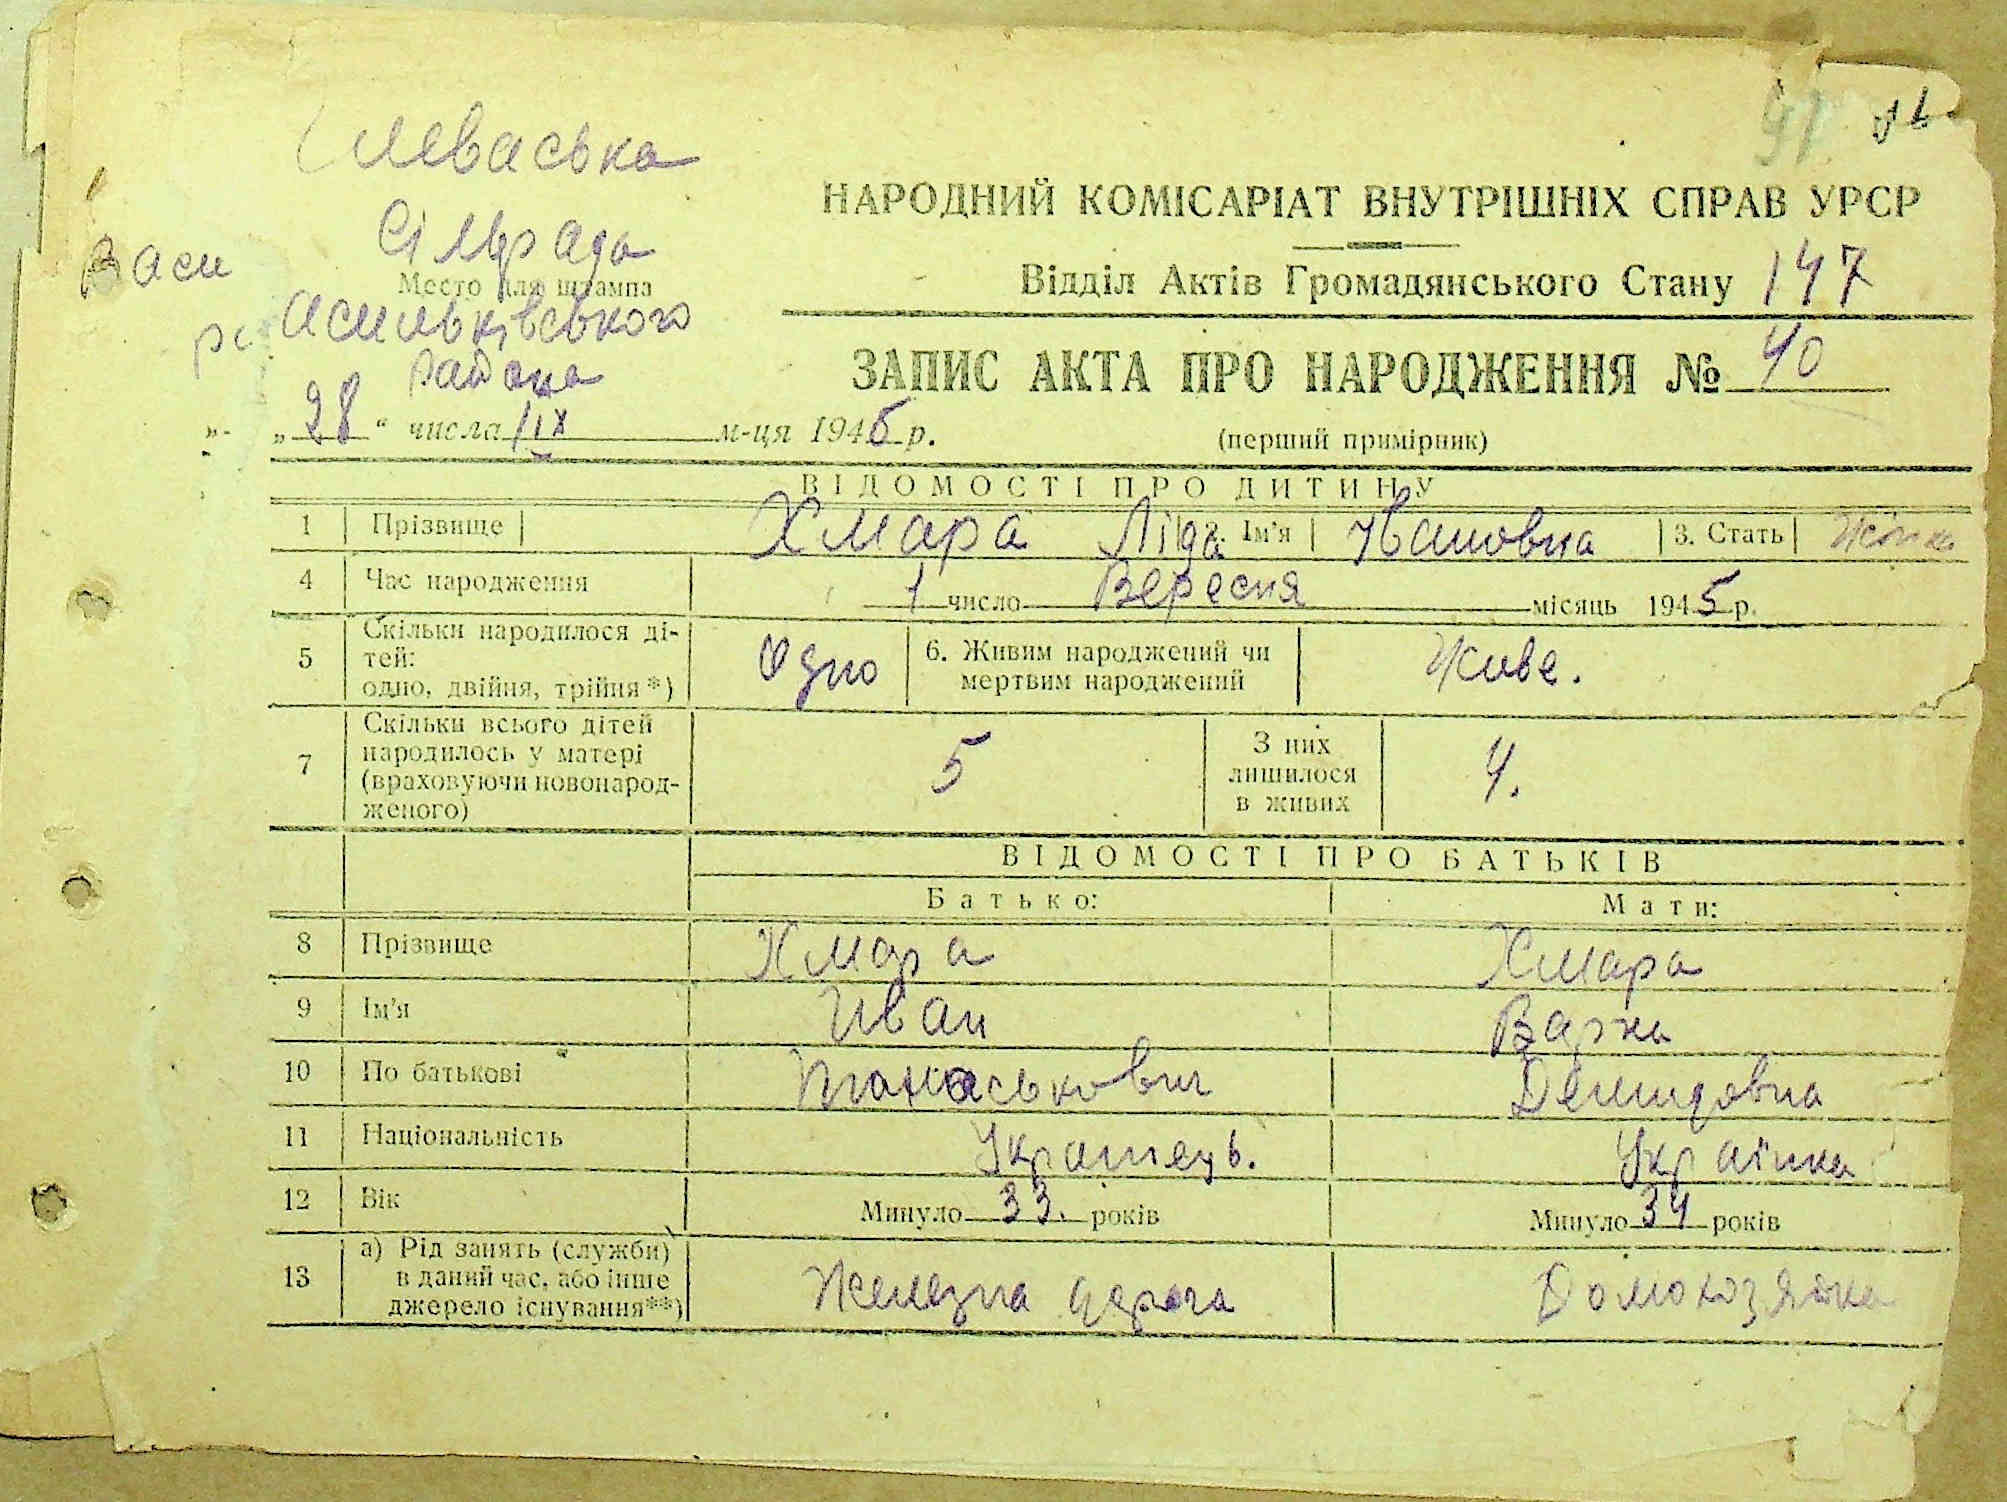 91
Сільрада
Васи
Место для штампа
асильківського
района
НАРОДНИЙ КОМІСАРІАТ ВНУТРІШНІХ СПРАВ УРСР
Відділ Актів Громадянського Стану 147
ЗАПИС АКТА ПРО НАРОДЖЕННЯ № 40
„28“ числа IX м-ця 1945 р.
(перший примірник)
ВІДОМОСТІ ПРО ДИТИНУ
1 Прізвище Хмара Ліда 2. Ім'я Ивановна 3. Стать Жінка
4 Час народження 1 число Вересня місяць 1945 р.
5 Скільки народилося ді-
тей:
одно, двійня, трійня*) Одно 6. Живим народжений чи
мертвим народжений Живе.
7 Скільки всього дітей
народилось у матері
(враховуючи новонарод-
женого) 5 З них
лишилося
в живих 4.
ВІДОМОСТІ ПРО БАТЬКІВ
Батько: Мати:
8 Прізвище Хмара Хмара
9 Ім'я Иван
10 По батькові Демидовна
11 Національність Українець. Українка
12 Вік Минуло 33. років Минуло 34 років
13 а) Рід занять (служби)
в даний час, або інше
джерело існування**) Железна дорога Домохозяйка